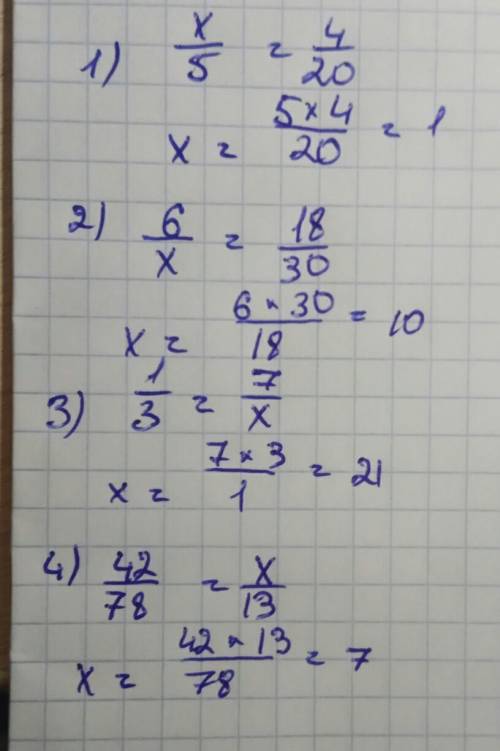 1) x/5 = 4/20
x = 5 × 4/20 = 1
2) 6/x = 18/30
x = 6 × 30/18 = 10
3) 1/3 = 7/x
x = 7 × 3/1 = 21
4) 42/78 = x/13
x = 42 × 13/78 = 7